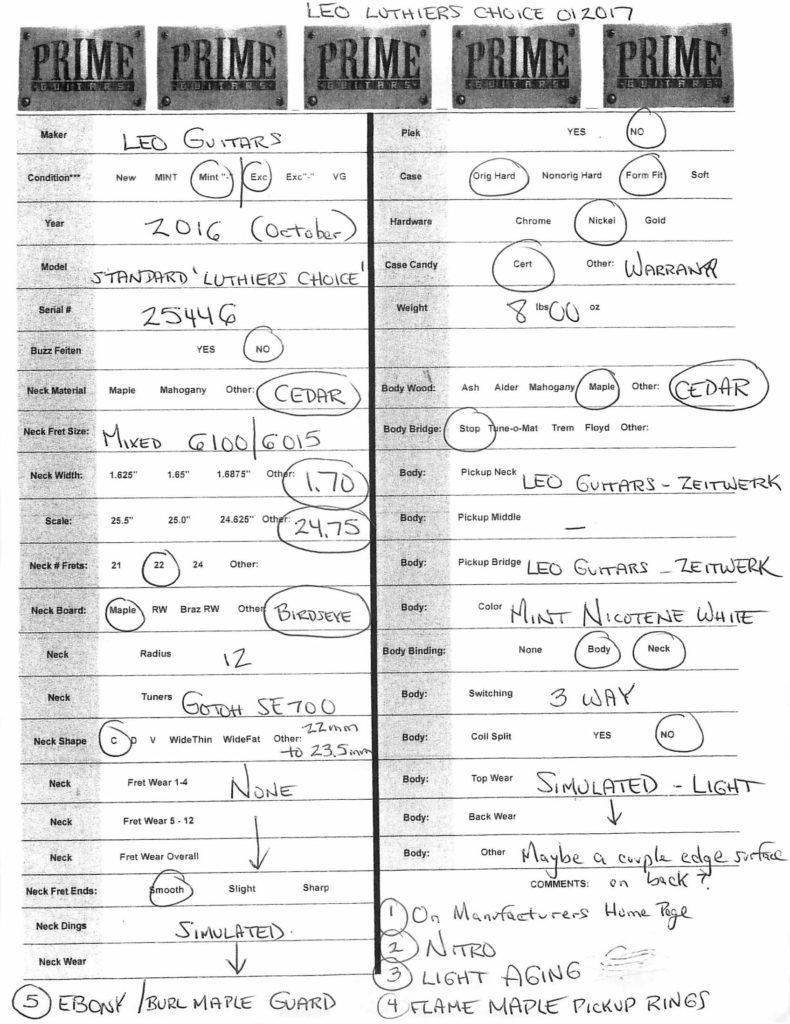 LEO LUTHIERS CHOICE 012017
PRIME GUITARS PRIME GUITARS PRIME GUITARS PRIME GUITARS PRIME GUITARS
Maker LEO GUITARS
Condition*** New MINT Mint "-" Exc Exc"-" VG
Year 2016 (October)
Model STANDARD 'LUTHIERS CHOICE'
Serial # 25446
Buzz Feiten YES NO
Neck Material Maple Mahogany Other: CEDAR
Neck Fret Size: MIXED 6100/6015
Neck Width: 1.625" 1.65" 1.6875" Other: 1.70
Scale: 25.5" 25.0" 24.625" Other: 24.75
Neck # Frets: 21 22 24 Other:
Neck Board: Maple RW Braz RW Other BIRDSEYE
Neck Radius 12
Neck Tuners GOTOH SE700
Neck Shape C D V WideThin WideFat Other: 22mm
to 23.5mm
Neck Fret Wear 1-4 NONE
Neck Fret Wear 5 - 12
Neck Fret Wear Overall
Neck Fret Ends: Smooth Slight Sharp
Neck Dings SIMULATED
Neck Wear
Plek YES NO
Case Orig Hard Nonorig Hard Form Fit Soft
Hardware Chrome Nickel Gold
Case Candy Cert Other: WARRANTY
Weight 8 lbs 00 oz
Body Wood: Ash Alder Mahogany Maple Other: CEDAR
Body Bridge: Stop Tune-o-Mat Trem Floyd Other:
Body: Pickup Neck LEO GUITARS - ZEITWERK
Body: Pickup Middle —
Body: Pickup Bridge LEO GUITARS - ZEITWERK
Body: Color MINT NICOTENE WHITE
Body Binding: None Body Neck
Body: Switching 3 WAY
Body: Coil Split YES NO
Body: Top Wear SIMULATED - LIGHT
Body: Back Wear
Body: Other Maybe a couple edge surface
COMMENTS: on back?
1 On Manufacturers Home Page
2 NITRO
3 LIGHT AGING
4 FLAME MAPLE PICKUP RINGS
5 EBONY/BURL MAPLE GUARD